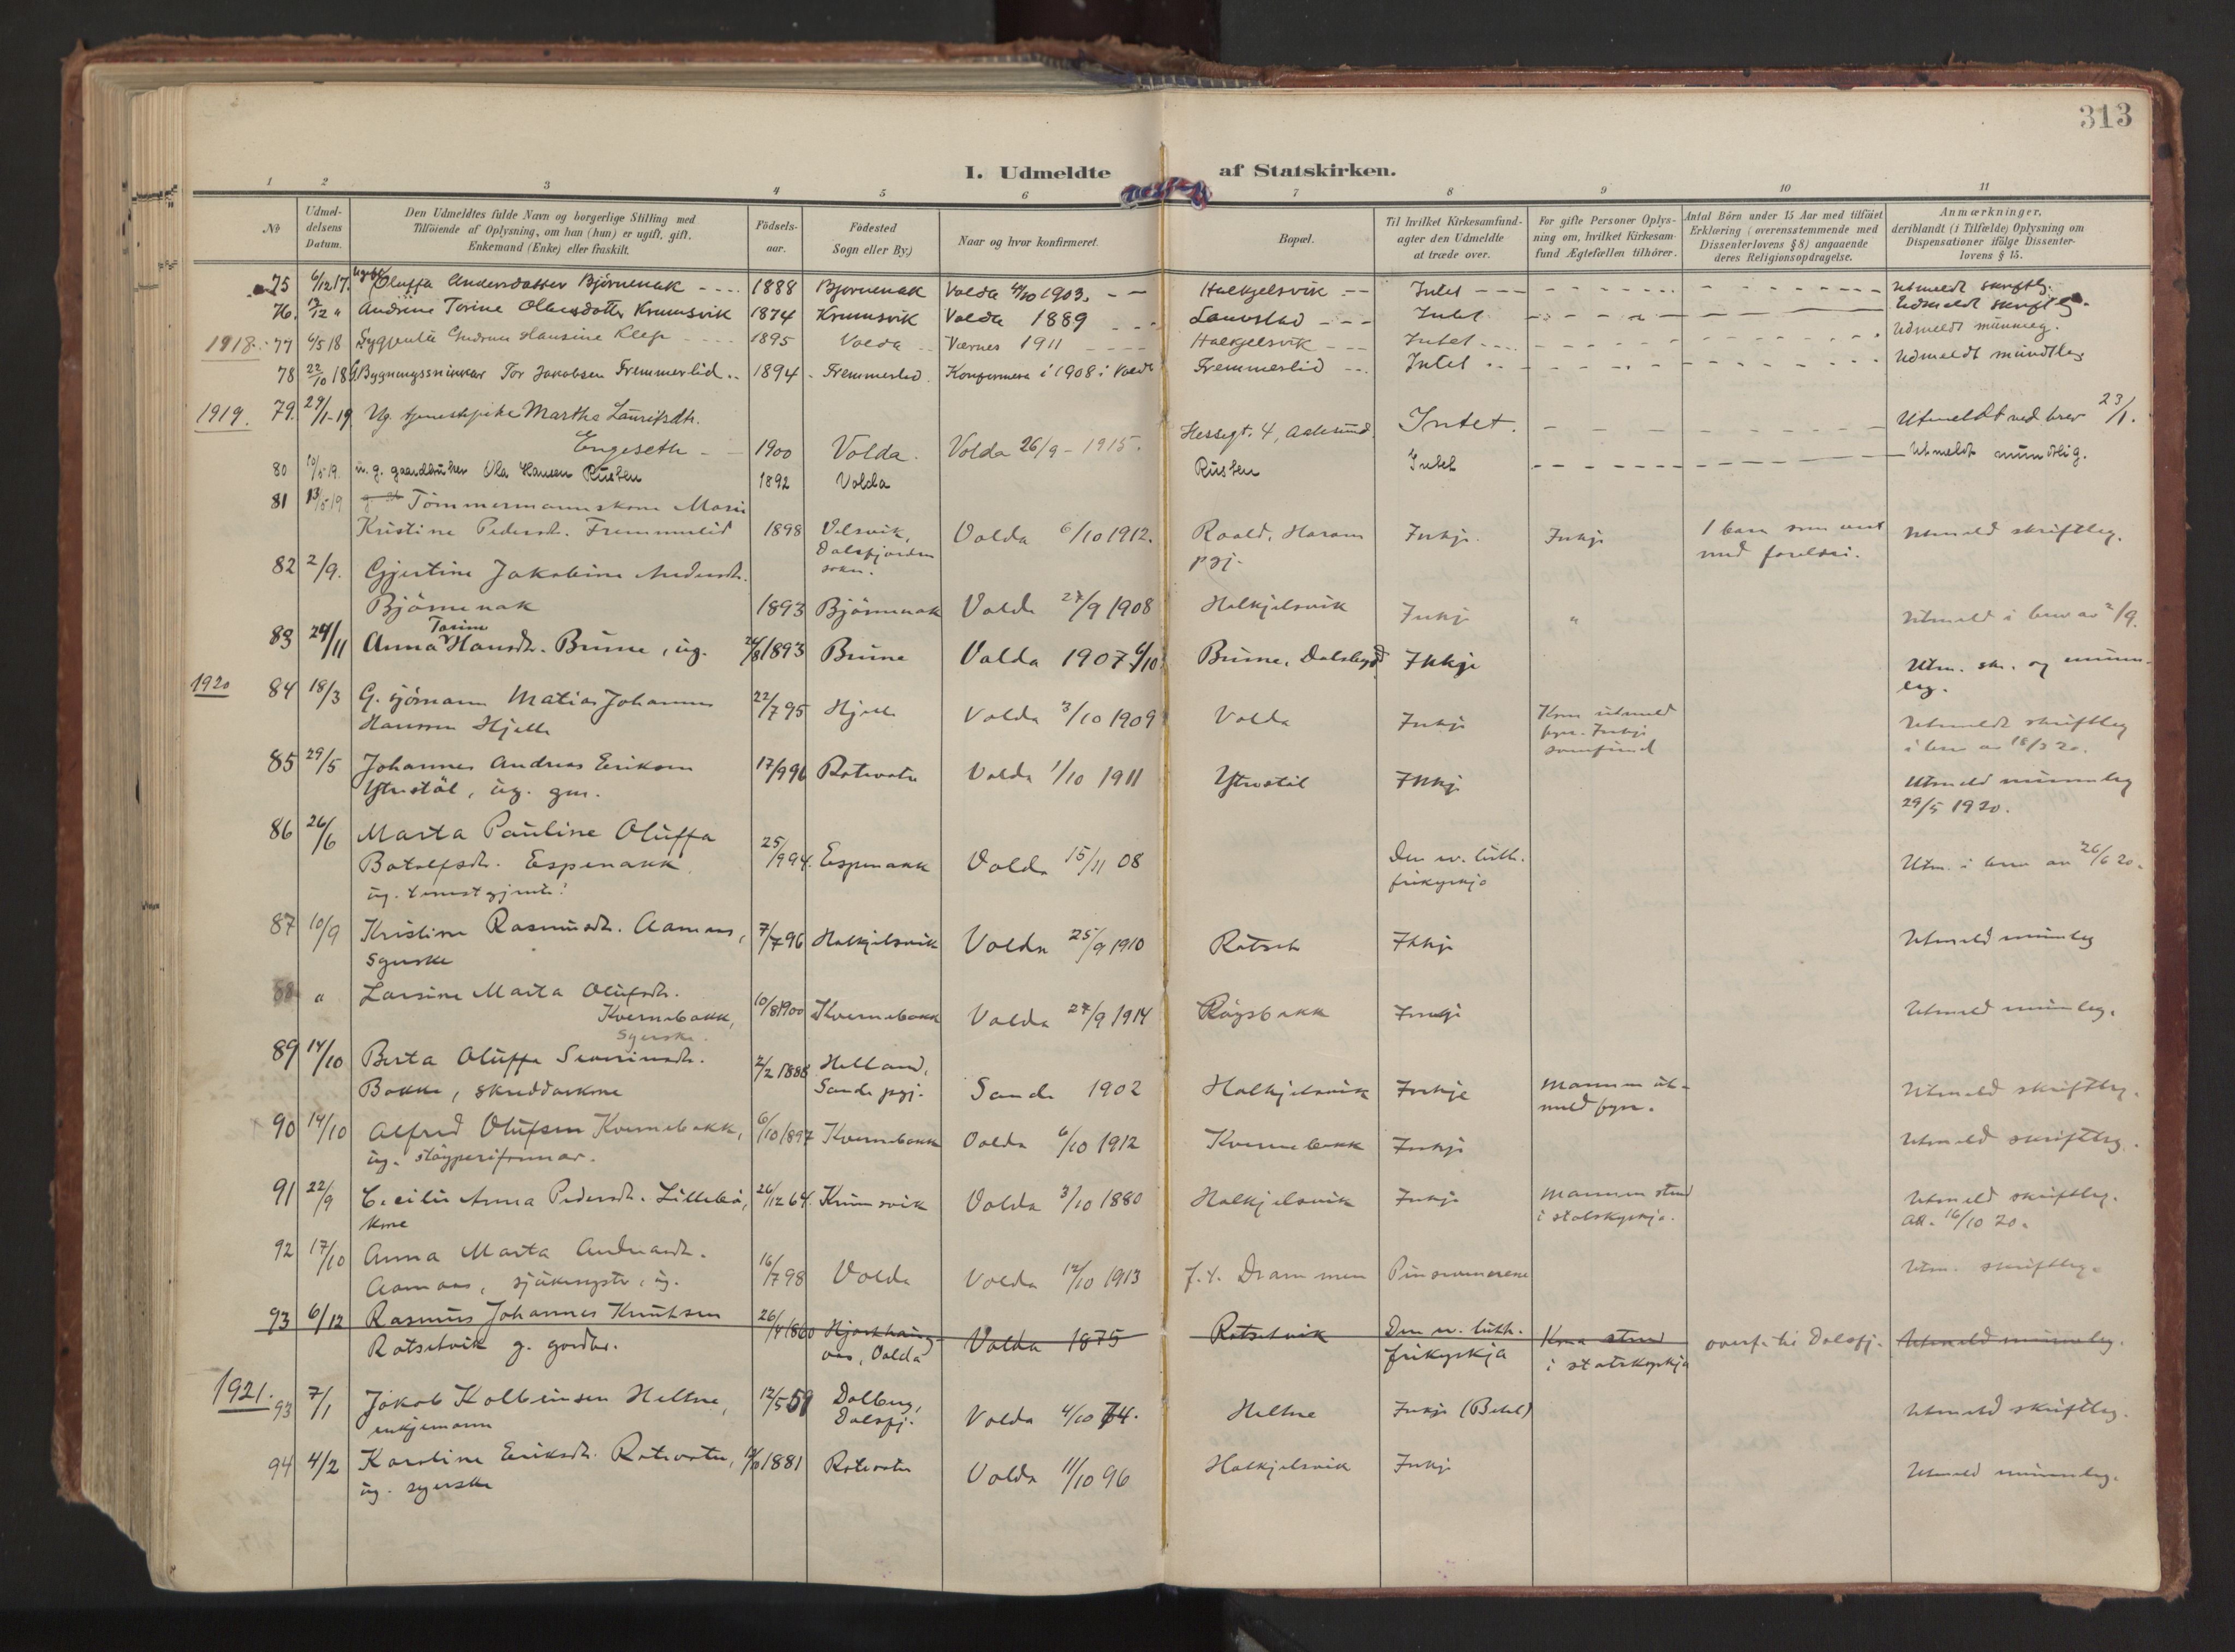 313
I. Udmeldte af Statskirken.
1 2 3 4 5 6 7 8 9 10 11
No
Udmeldelsens Datum.
Den Udmeldtes fulde Navn og borgerlige Stilling med
Tilföiende af Oplysning, om han (hun) er ugift, gift,
Enkemand (Enke) eller fraskilt.
Födselsaar.
Födested
Sogn eller By.)
Naar og hvor konfirmeret.
Bopæl.
Til hvilket Kirkesamfund-
agter den Udmeldte
at træde over.
For gifte Personer Oplys-
ning om, hvilket Kirkesam-
fund Ægtefællen tilhörer.
Antal Börn under 15 Aar med tilföiet
Erklæring (overensstemmende med
Dissenterlovens § 8) angaaende
deres Religionsopdragelse.
Anmærkninger,
deriblandt (i Tilfælde) Oplysning om
Dispensationer ifölge Dissenter-
lovens § 15.
75 6/12 17. ugift Oluffa Andersdatter Björnenak 1888 Bjørnenak Volda 4/10 1903. Halkjelsvik Intet Utmeldt skriftlg.
76. 12/12 " Andrine Torine Olleusdotter Krumsvik 1874 Krumsvik Volda 1889 Intet Udmeldt skriftlg.
1918 77 6/5 18 Sygepleie Gudrun Hansine Kleppe 1895 Volda Værnes 1911 Halkjelsvik Intet Udmeldt mundleg.
78 22/10 18 Bygningssnikkar Tor Jakobsen Fremmerlid 1894 Fremmerlid Konfirmera i 1908 i Volda Fremmerlid Intet Udmeldt mundtleg
1919. 79. 29/1-19 Ug. tjenestepike Martha Lauritsdtr. Intet. Utmeldt ved brev 23/1.
Engeseth 1900 Volda. Volda 26/9 - 1915. Hessegt. 4, Aalesund.
80 10/5 19. u. g. gaardbruker Ola Hansen Rusten 1892 Volda Rusten Intet Utmeldt mundtlig.
81 13/5 19 Tömmermannskone Marie
Kristine Pedersdt. Fremmerlid 1898 Velsvik, Dalsfjorden sokn. Volda 6/10 1912. Roald, Haram pgj. Inkje. Inkje 1 barn som vert med foreldri. Utmeld skriftleg.
82 2/9. Gjertine Jakobine Andersdt.
Björnenak 1893 Björnenak Volda 27/9 1908 Halkjelsvik Inkje " Utmeld i brev av 2/9.
83 24/11 Anna Torine Hansdt. Brune, ug. 24/8 1893 Brune Volda 1907 6/10 Brune, Dalsbygd Inkje Utm. skr. og munn-
leg.
1920 84 18/3 G. sjömann Matias Johannes
Hansen Hjelle 22/7 95 Hjelle Volda 3/10 1909 Volda Inkje Kona utmeld fyrr. Inkje samfund Utmeldt skriftleg
i brev av 18/3 20.
85 29/5 Johannes Andreas Eriksen
Ytrestöl, ug. gm. 17/9 96 Rotevatn Volda 1/10 1911 Ytrestöl Inkje Utmeld munnleg
29/5 1920.
86 26/6 Marta Pauline Oluffa
Botolfsdt. Espenakk 25/9 94. Espenakk Volda 15/11 08 Den ev. luth. frikyrkje Utm. i brev av 26/6 20.
ug. tenestgjente.
87 10/9 Kristine Rasmusdt. Aamaas, 7/7 96 Halkjelsvik Volda 25/9 1910 Rotset Inkje Utmeld munnleg
syerske
88 " Larsine Marta Olufsdt.
Kvernebakk, 10/8 1900 Kvernebakk Volda 27/9 1914 Röysbakk Inkje Utmeld munnleg.
Syerske.
89 14/10 Berta Oluffa Severinsdt.
Bakke, skreddarkone 2/2 1888 Helland, Sande pgj. Sande 1902 Halkjelsvik Inkje Mannen ut-
meld fyrr. Utmeld skriftleg.
90 14/10 Alfred Olufsen Kvernebakk, 6/10 1897 Kvernebakk Volda 6/10 1912 Kvernebakk Inkje Utmeld skriftleg.
ug. støyperiformar.
91 22/9 Cecilie Anna Pedersdt. Lillebö, 26/12 64. Krumsvik Volda 3/10 1880 Halkjelsvik Inkje Mannen stend
i statskyrkja. Utmeld skriftleg.
kone att. 16/10 20.
92 17/10 Anna Marta Andreasdt.
Aamaas, sjukesyster, ug. 16/7 98 Volda Volda 12/10 1913 f. t. Drammen Pinsevennerne Utm. skriftleg.
93 6/12 Rasmus Johannes Knutsen
Rotsetvik g. gardbr. 26/4 1860 Volda Volda 1875 Rotsetvik Den ev. luth. frikyrkja Kona stend i statskyrkja overf. til Dalsfj. Utmeld munnleg.
1921. 93 7/1 Jakob Kolbeinsen Heltne, 12/5 59 Dalsfj. Volda 4/10 74. Heltne Inkje (Betel) Utmeld skriftleg.
enkjemann
94 4/2 Karoline Eriksdt. Rotevatn, 1881 Rotevatn Volda 11/10 96 Halkjelsvik Inkje Utmeld munnleg.
ug. syerske